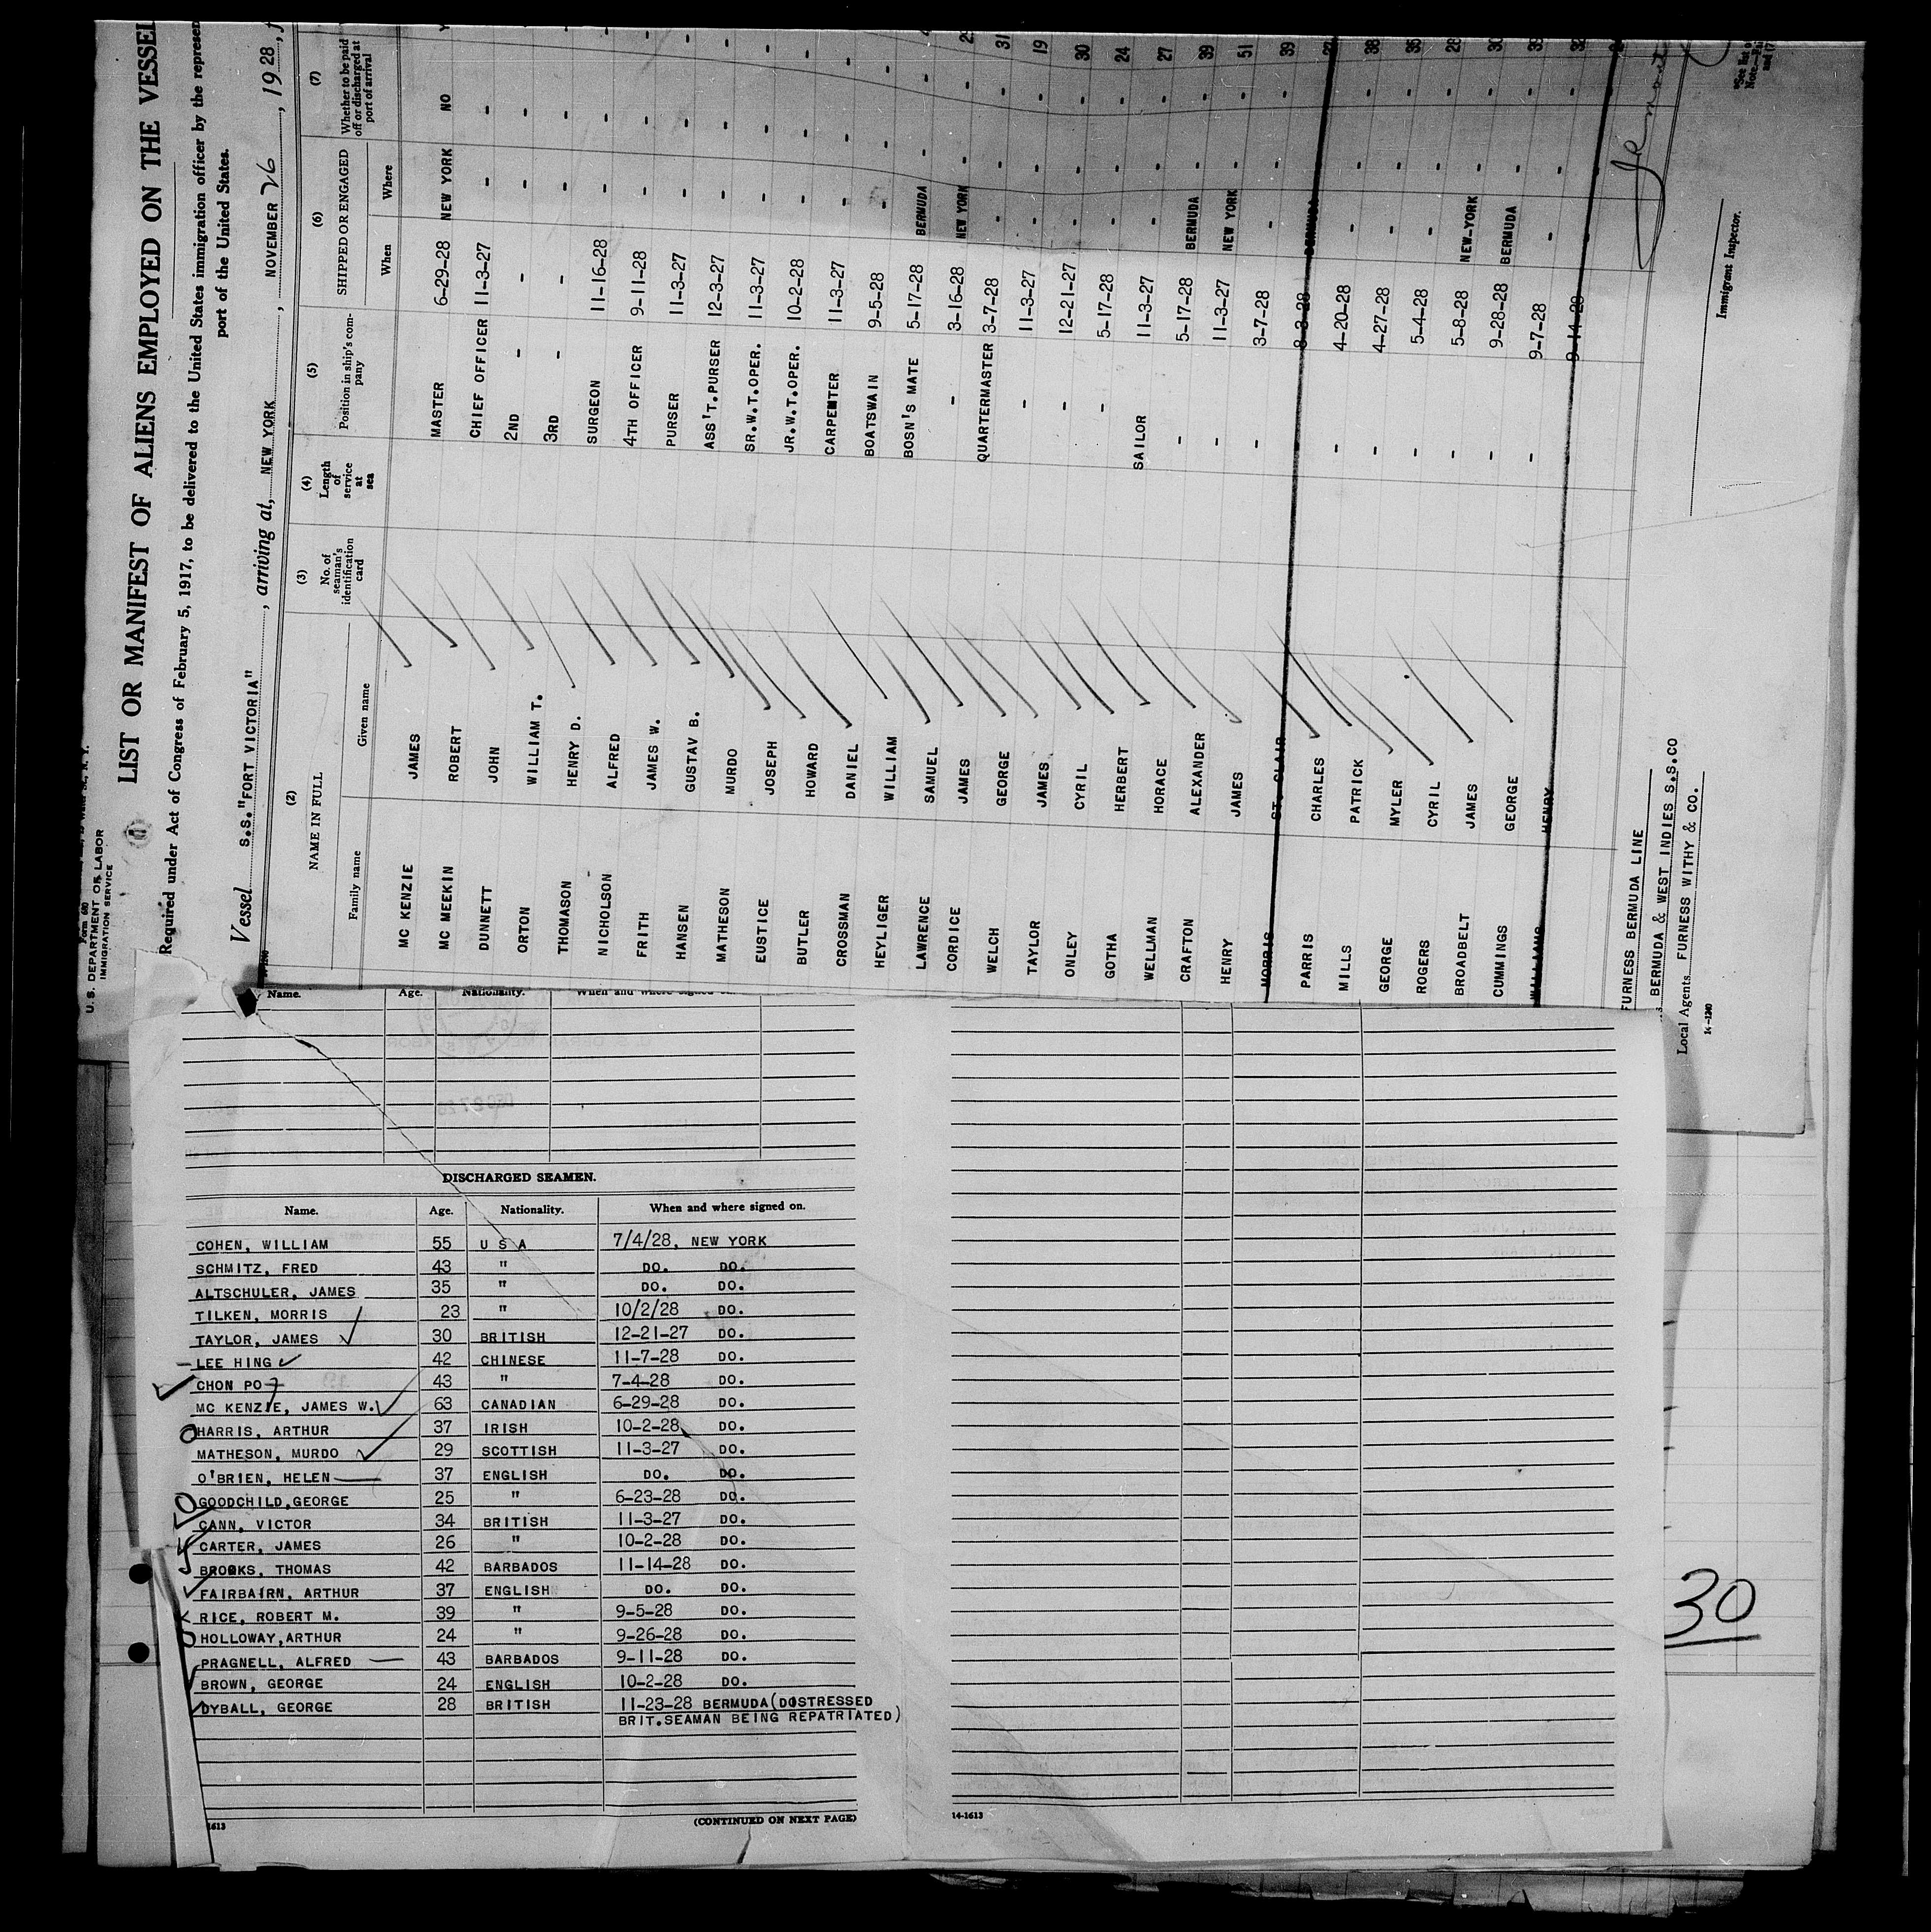 Form 680
U. S. DEPARTMENT OF LABOR
IMMIGRATION SERVICE
LIST OR MANIFEST OF ALIENS EMPLOYED ON THE VESSEL
Required under Act of Congress of February 5, 1917, to be delivered to the United States immigration officer by the represen
port of the United States.
Vessel S.S."FORT VICTORIA", arriving at, NEW YORK, NOVEMBER 26, 1928, f
(2) (3) (4) (5) (6) (7)
NAME IN FULL No. of seaman's identification card Length of service at sea Position in ship's company SHIPPED OR ENGAGED Whether to be paid off or discharged at port of arrival
Family name Given name When Where
MC KENZIE JAMES MASTER 6-29-28 NEW YORK NO
MC MEEKIN ROBERT CHIEF OFFICER 11-3-27 - -
DUNNETT JOHN 2ND - - - -
ORTON WILLIAM T. 3RD - - - -
THOMASON HENRY D. SURGEON 11-16-28 - -
NICHOLSON ALFRED 4TH OFFICER 9-11-28 - -
FRITH JAMES W. PURSER 11-3-27 - -
HANSEN GUSTAV B. ASS'T.PURSER 12-3-27 - -
MATHESON MURDO SR.W.T.OPER. 11-3-27 - -
EUSTICE JOSEPH JR.W.T.OPER. 10-2-28 - -
BUTLER HOWARD CARPENTER 11-3-27 - -
CROSSMAN DANIEL BOATSWAIN 9-5-28 - -
HEYLIGER WILLIAM BOSN'S MATE 5-17-28 BERMUDA -
LAWRENCE SAMUEL - 3-16-28 NEW YORK -
CORDICE JAMES QUARTERMASTER 3-7-28 - - 31
WELCH GEORGE - 11-3-27 - - 19
TAYLOR JAMES - 12-21-27 - - 30
ONLEY CYRIL - 5-17-28 - - 24
GOTHA HERBERT SAILOR 11-3-27 - - 27
WELLMAN HORACE - 5-17-28 BERMUDA - 39
CRAFTON ALEXANDER - 11-3-27 NEW YORK - 51
HENRY JAMES - 3-7-28 - - 39
MORRIS ST. CLAIR - 8-3-28 BERMUDA -
PARRIS CHARLES - 4-20-28 - - 38
MILLS PATRICK - 4-27-28 - - 35
GEORGE MYLER - 5-4-28 - - 28
ROGERS CYRIL - 5-8-28 NEW-YORK - 30
BROADBELT JAMES - 9-28-28 BERMUDA -
CUMMINGS GEORGE - 9-7-28 - -
WILLIAMS HENRY - 9-14-28 - -
FURNESS BERMUDA LINE
BERMUDA & WEST INDIES S.S.CO
Local Agents FURNESS WITHY & CO.
14-1240
Immigrant Inspector.
Name. Age. Nationality.
DISCHARGED SEAMEN.
Name. Age. Nationality. When and where signed on.
COHEN, WILLIAM 55 U S A 7/4/28, NEW YORK
SCHMITZ, FRED 43 " DO. DO.
ALTSCHULER, JAMES 35 " DO. DO.
TILKEN, MORRIS 23 " 10/2/28 DO.
TAYLOR, JAMES 30 BRITISH 12-21-27 DO.
LEE HING 42 CHINESE 11-7-28 DO.
CHON PO 43 " 7-4-28 DO.
MC KENZIE, JAMES W. 63 CANADIAN 6-29-28 DO.
HARRIS, ARTHUR 37 IRISH 10-2-28 DO.
MATHESON, MURDO 29 SCOTTISH 11-3-27 DO.
O'BRIEN, HELEN 37 ENGLISH DO. DO.
GOODCHILD,GEORGE 25 " 6-23-28 DO.
CANN, VICTOR 34 BRITISH 11-3-27 DO.
CARTER, JAMES 26 " 10-2-28 DO.
BROOKS, THOMAS 42 BARBADOS 11-14-28 DO.
FAIRBAIRN, ARTHUR 37 ENGLISH DO. DO.
RICE, ROBERT M. 39 " 9-5-28 DO.
HOLLOWAY,ARTHUR 24 " 9-26-28 DO.
PRAGNELL, ALFRED 43 BARBADOS 9-11-28 DO.
BROWN, GEORGE 24 ENGLISH 10-2-28 DO.
DYBALL, GEORGE 28 BRITISH 11-23-28 BERMUDA(DOSTRESSED
BRIT.SEAMAN BEING REPATRIATED)
1613 (CONTINUED ON NEXT PAGE)
14-1613
30